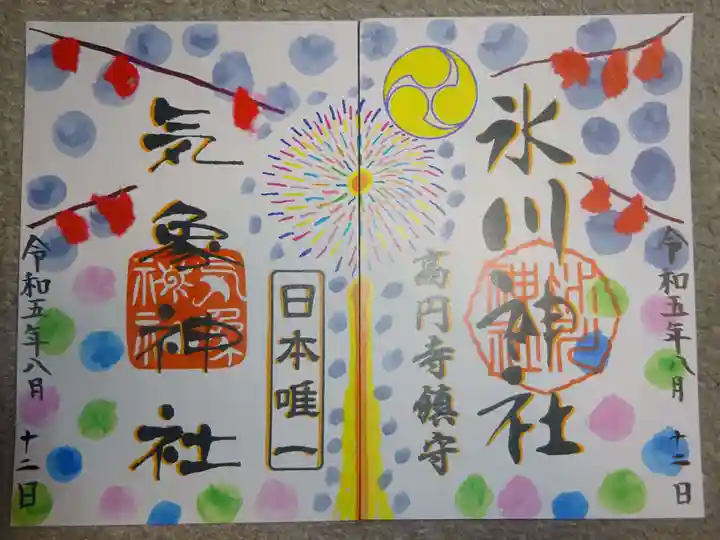 氷川神社
高円寺鎮守
令和五年八月十二日
気象神社
日本唯一
令和五年八月十二日